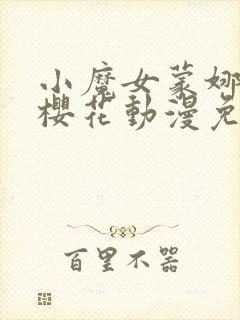 小魔女蒙娜
櫻花動漫免
百里不器